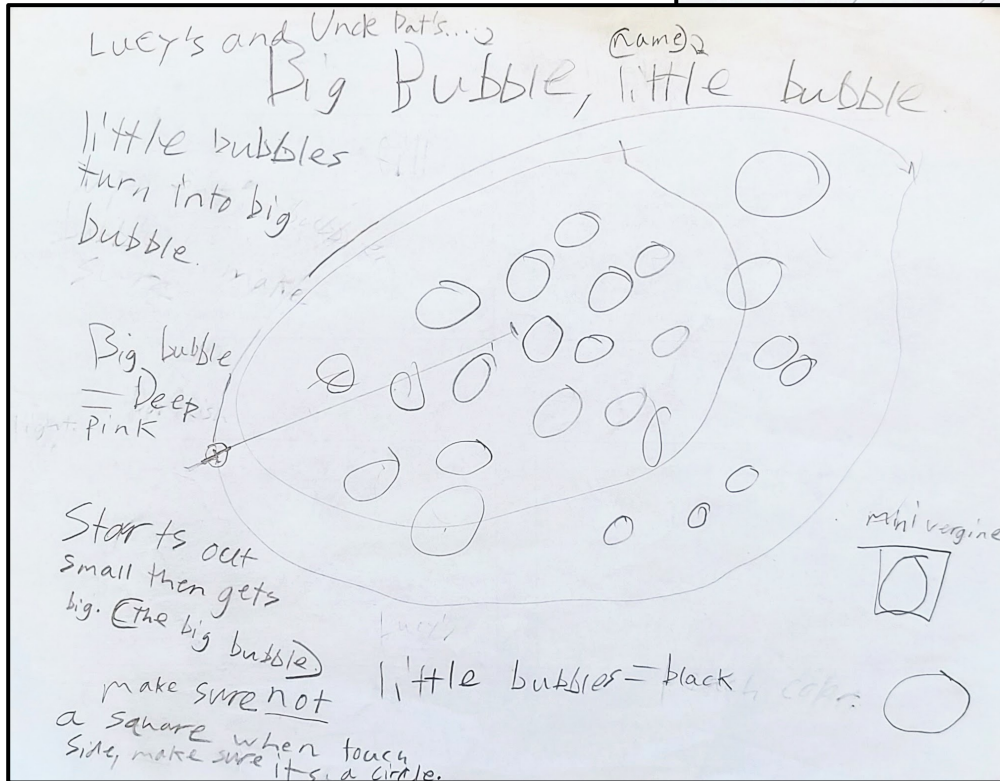 Lucy's and Uncle Pat's...
(name)
Big Bubble, little bubble.
little bubbles
turn into big
bubble.
make
Big bubble
= Deep
Pink
Starts out
small then gets
big. (The big bubble)
make sure not
a square when touch
side, make sure it's a circle.
Lucy's
little bubbles = black
mini vergine